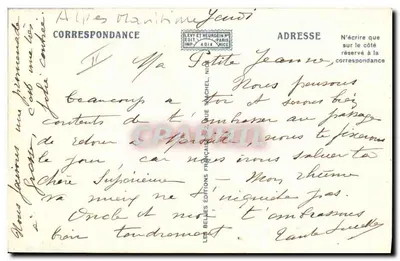 Alpes Maritimes
Jeudi
CORRESPONDANCE
LEVY ET NEURDEIN RÉUNIS
PARIS
IMP.
ADRESSE
N'écrire que
sur le côté
réservé à la
correspondance
II
Ma Petite Jeanne,
Nous pensons
beaucoup à toi et serons bien
contents de t'embrasser au passage
de retour à nous te fixerons
le jour, car nous irons saluer ta
Chère Supérieure — Mon rhume
va mieux ne t'inquiètes pas.
Oncle et moi t'embrassons
bien tendrement.
Tante
Nous faisons une promenade
à c'est une
jolie contrée
LES BELLES EDITIONS FRANÇAISES